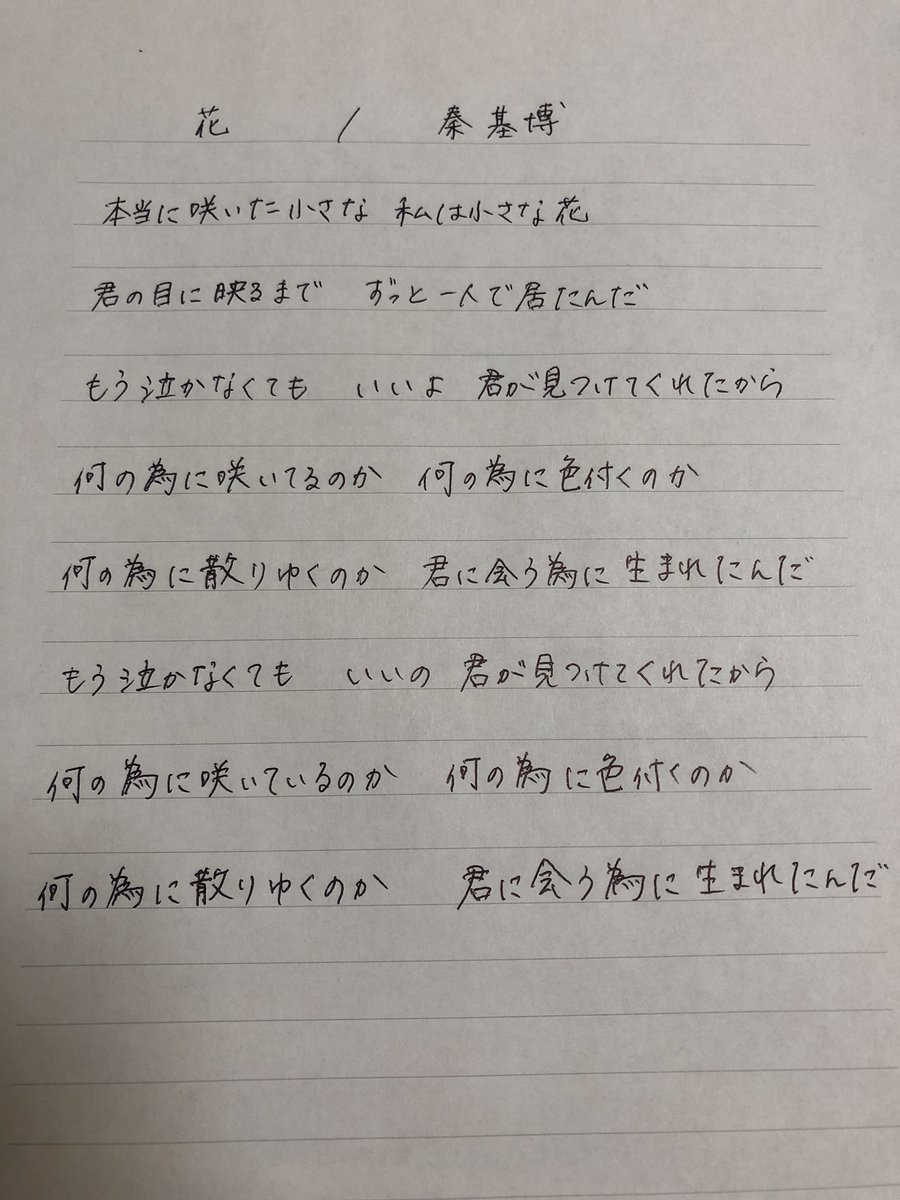 花 / 秦基博
本当に咲いた小さな 私は小さな花
君の目に映るまで ずっと一人で居たんだ
もう泣かなくても いいよ 君が見つけてくれたから
何の為に咲いてるのか 何の為に色付くのか
何の為に散りゆくのか 君に会う為に生まれたんだ
もう泣かなくても いいの 君が見つけてくれたから
何の為に咲いているのか 何の為に色付くのか
何の為に散りゆくのか 君に会う為に生まれたんだ